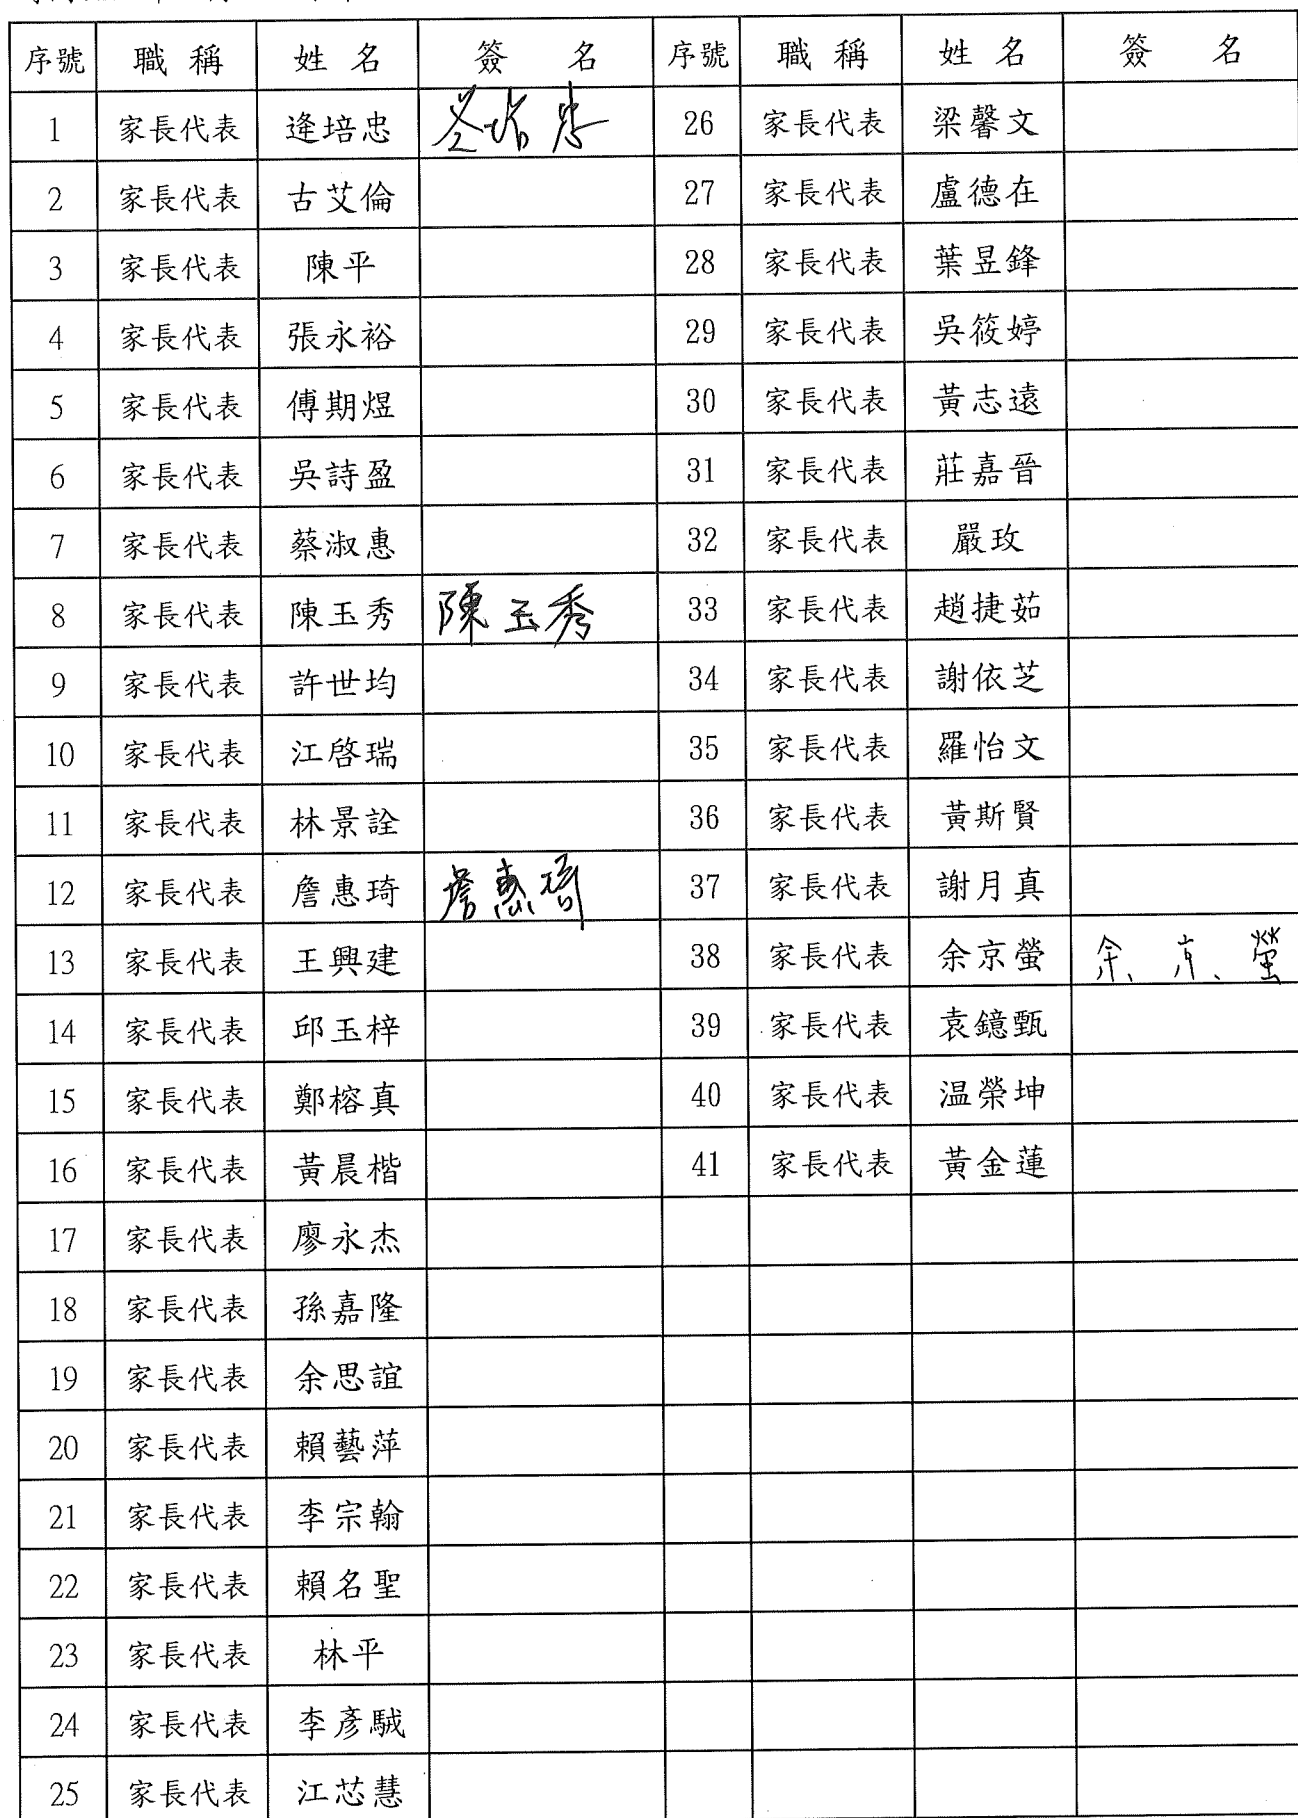 序號 職稱 姓名 簽名 序號 職稱 姓名 簽名
1 家長代表 逄培忠 26 家長代表 梁馨文
2 家長代表 古艾倫 27 家長代表 盧德在
3 家長代表 陳平 28 家長代表 葉昱鋒
4 家長代表 張永裕 29 家長代表 吳筱婷
5 家長代表 傅期煜 30 家長代表 黃志遠
6 家長代表 吳詩盈 31 家長代表 莊嘉晉
7 家長代表 蔡淑惠 32 家長代表 嚴玫
8 家長代表 陳玉秀 陳玉秀 33 家長代表 趙捷茹
9 家長代表 許世均 34 家長代表 謝依芝
10 家長代表 江啓瑞 35 家長代表 羅怡文
11 家長代表 林景詮 36 家長代表 黃斯賢
12 家長代表 詹惠琦 詹惠琦 37 家長代表 謝月真
13 家長代表 王興建 38 家長代表 余京螢 余京螢
14 家長代表 邱玉梓 39 家長代表 袁鏡甄
15 家長代表 鄭榕真 40 家長代表 温榮坤
16 家長代表 黃晨楷 41 家長代表 黃金蓮
17 家長代表 廖永杰
18 家長代表 孫嘉隆
19 家長代表 余思誼
20 家長代表 賴藝萍
21 家長代表 李宗翰
22 家長代表 賴名聖
23 家長代表 林平
24 家長代表 李彥駥
25 家長代表 江芯慧